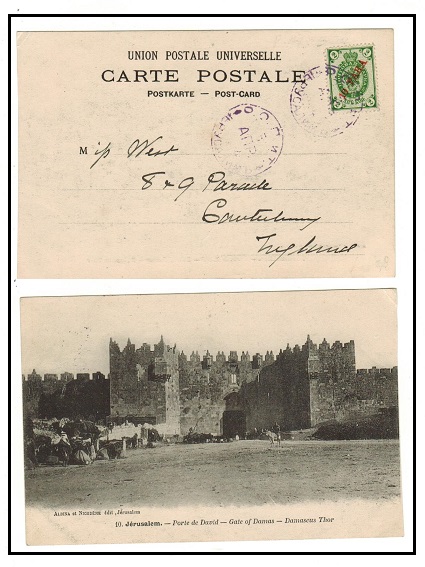 UNION POSTALE UNIVERSELLE
CARTE POSTALE
POSTKARTE — POST-CARD
M iss West
8 & 9 Parade
Canterbury
England
ALBINA et NICODÈME édit., Jérusalem
10. Jérusalem. — Porte de David — Gate of Damas — Damascus Thor